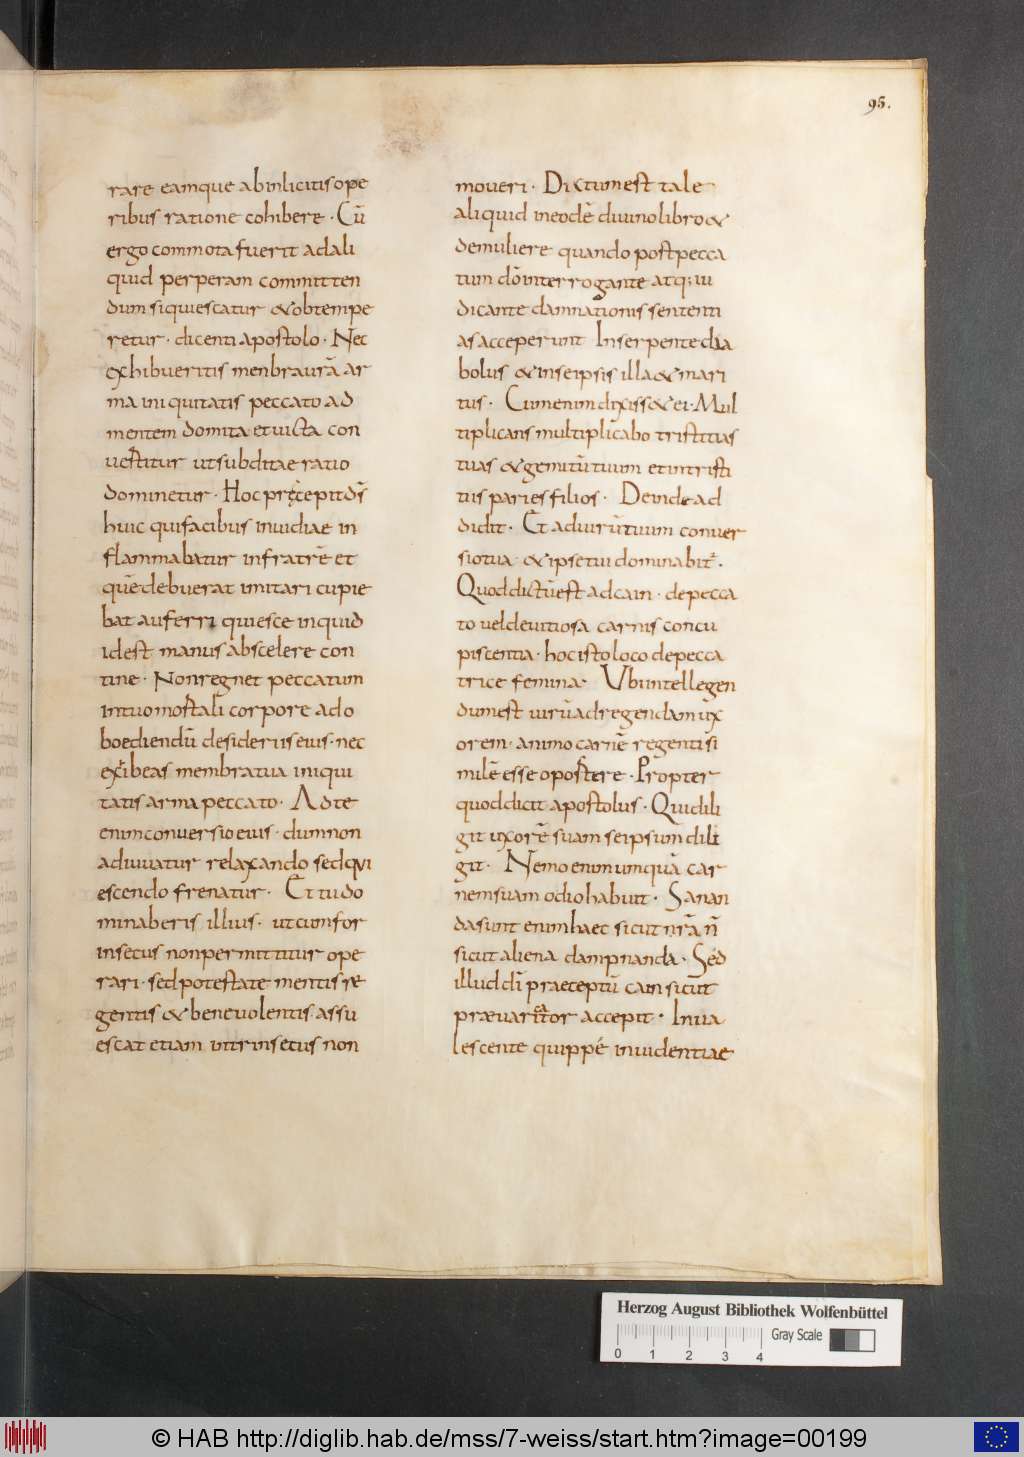 95.
rare eamque abinlicitis ope
ribus ratione cohibere · Cū
ergo commota fuerit adali
quid perperam committen
dum si quiescatur & obtempe
retur · dicenti apostolo · Nec
exhibueritis menbra urā ar
ma iniquitatis peccato ad
mentem domita et uicta con
uestitur ut subditae ratio
dominetur · Hoc pręcepit ds̄
huic qui facibus inuidiae in
flammabatur in fratrē et
quē debuerat imitari cupie
bat auferri quiesce inquid
idest manus abscelere con
tine · Non regnet peccatum
intuo mortali corpore ad o
boediendū desideriis eius · nec
exibeas membra tua iniqui
tatis arma peccato · Ad te
enim conuersio eius · dum non
adiuuatur relaxando sed qui
escendo frenatur · Et tu do
minaberis illius · ut cum for
insecus non permittitur ope
rari · sed potestate mentis re
gentis & beneuolentis assu
escat etiam intrinsecus non
moueri · Dictum est tale
aliquid in eodē diuino libro &
de muliere quando post pecca
tum dō interrogante atq; iu
dicante damnationis sententi
as acceperunt In serpente dia
bolus & in se ipsis illa & mari
tus · Cum enim dixiss& ei · Mul
tiplicans multiplicabo tristitias
tuas & gemitū tuum et in tristi
tiis paries filios · Deinde ad
didit · Et ad uirū tuum conuer
sio tua & ipse tui dominabit̄ ·
Quod dictū est ad cain · de pecca
to uel de uitiosa carnis concu
piscentia · hoc isto loco de pecca
trice femina · Vbi intellegen
dum est uirū ad regendam ūx
orem · animo carnē regenti si
milē esse oportere · Propter
quod dicit apostolus · Qui dili
git uxorē suam se ipsum dili
git · Nemo enim umquā car
nem suam odio habuit · Sanan
da sunt enim haec sicut nr̄a n̄
sicut aliena dampnanda · Sed
illud dī praeceptū cain sicut
præuaricator accepit · Inua
lescente quippe inuidentiae
Herzog August Bibliothek Wolfenbüttel
Gray Scale
0 1 2 3 4
© HAB http://diglib.hab.de/mss/7-weiss/start.htm?image=00199